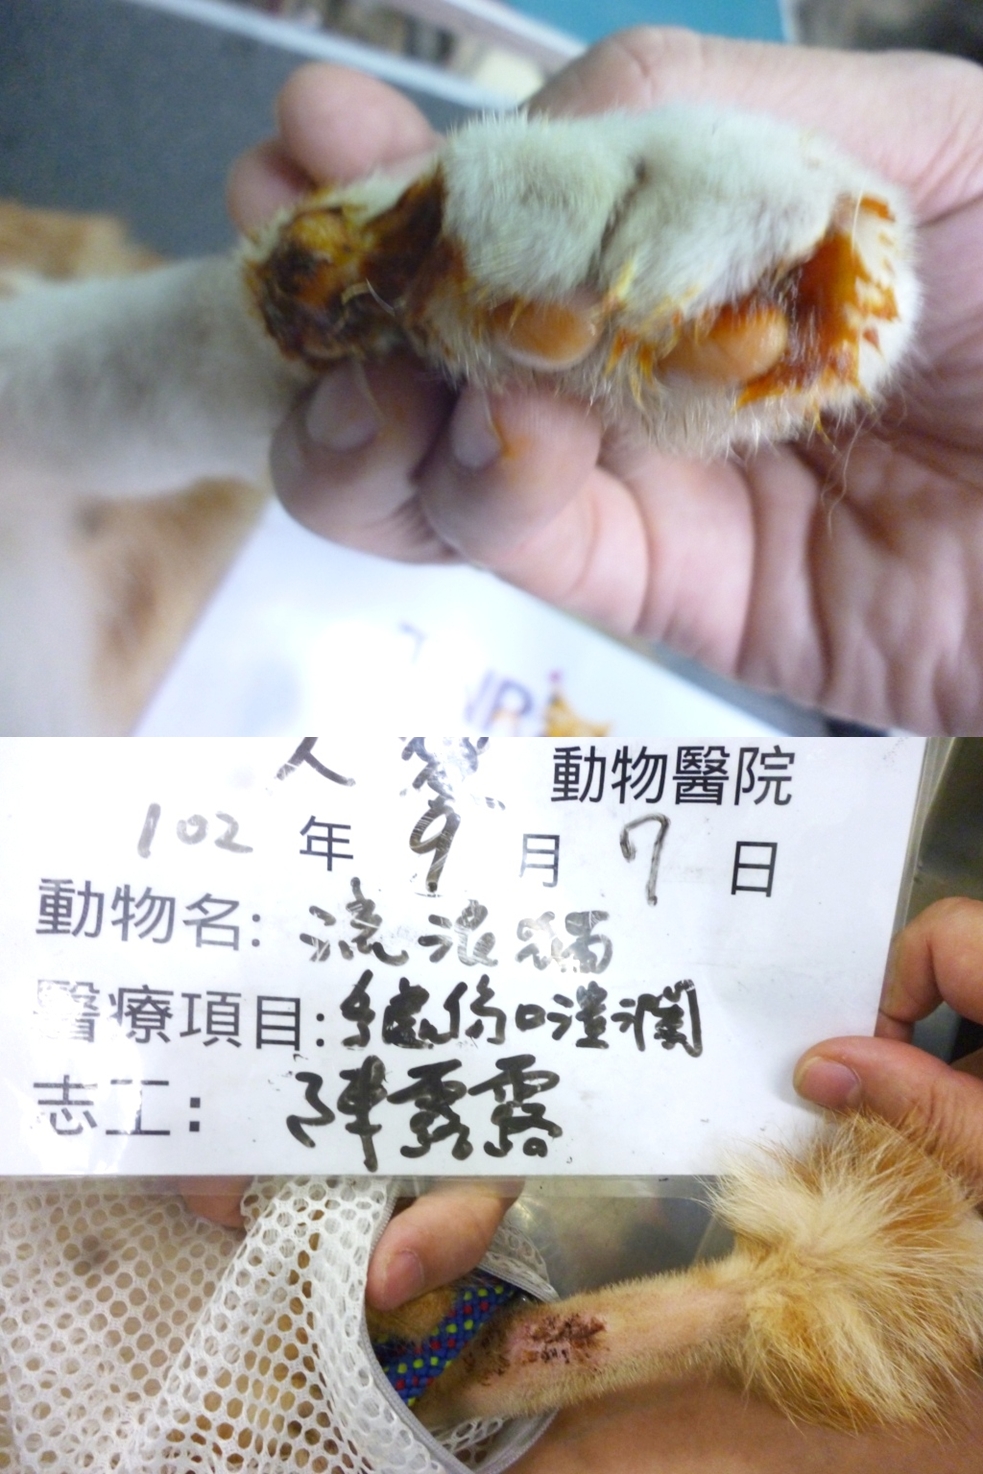 動物醫院
102 年 9 月 7 日
動物名: 流浪貓
醫療項目: 傷口潰瀾
志工: 陳露露